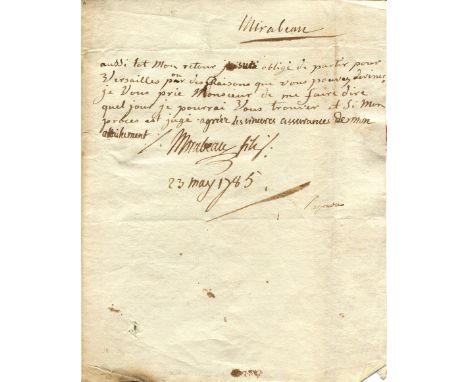 Mirabeau
aussi tot Mon retour je suis obligé de partir pour
Versailles ou par des Raisons que vous pouvez deviner
je Vous prie Monsieur de me faire dire
quel jour je pourrai Vous trouver et Si Mon
proces est jugé agréez les sincères assurances de mon
attachement
Mirabeau fils
23 may 1785